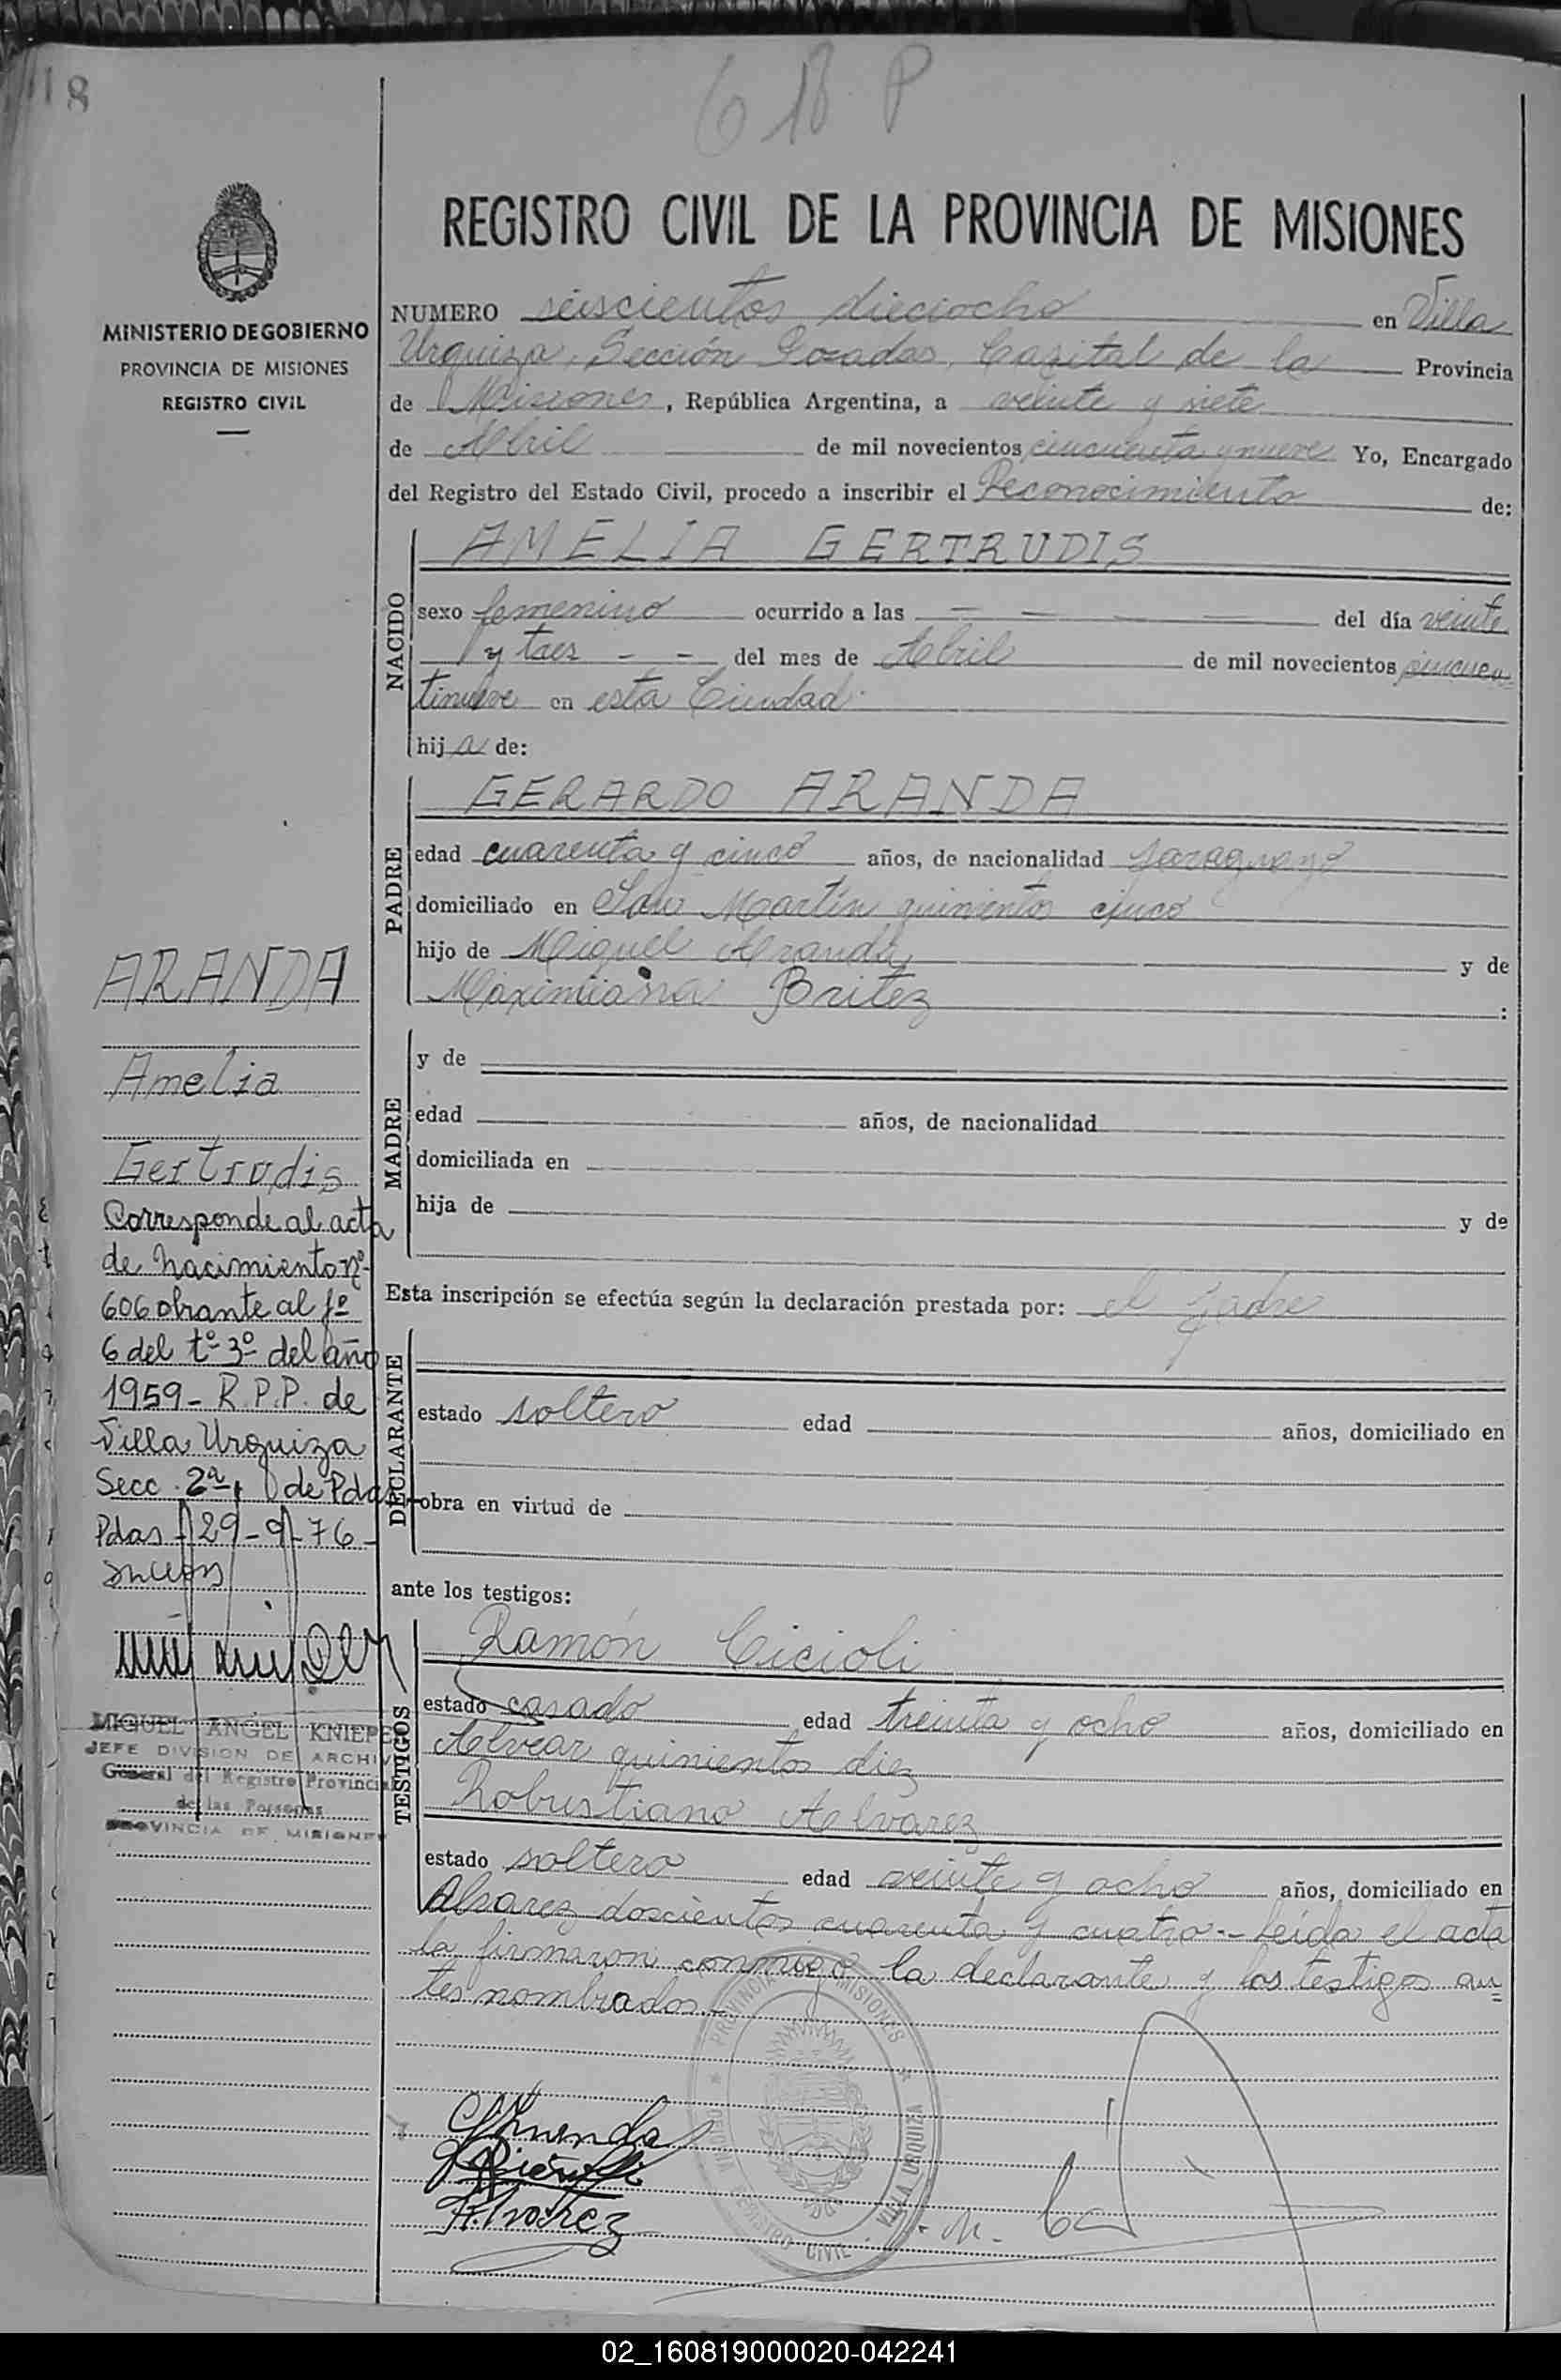 18
618 P
REGISTRO CIVIL DE LA PROVINCIA DE MISIONES
MINISTERIO DE GOBIERNO
PROVINCIA DE MISIONES
REGISTRO CIVIL
NUMERO seiscientos dieciocho en Villa
Urquiza, Sección Posadas, Capital de la Provincia
de Misiones, República Argentina, a veinte y siete
de Abril de mil novecientos cincuenta y nueve Yo, Encargado
del Registro del Estado Civil, procedo a inscribir el Reconocimiento de:
NACIDO
AMELIA GERTRUDIS
sexo femenino ocurrido a las — — — del día veinte
y tres - - del mes de Abril de mil novecientos cincuen
tinueve en esta Ciudad.
hija de:
PADRE
GERARDO ARANDA
edad cuarenta y cinco años, de nacionalidad paraguayo
domiciliado en San Martín quinientos cinco
hijo de Miguel Aranda y de
Maximiana Britez :
MADRE
y de
edad años, de nacionalidad
domiciliada en
hija de y de
Esta inscripción se efectúa según la declaración prestada por: el padre
DECLARANTE
estado soltero edad años, domiciliado en
obra en virtud de
ante los testigos:
TESTIGOS
Ramón Cicioli
estado casado edad treinta y ocho años, domiciliado en
Alvear quinientos diez
Robustiano Alvarez
estado soltero edad veinte y ocho años, domiciliado en
Alvarez doscientos cuarenta y cuatro.- Leída el acta
la firmaron conmigo la declarante y los testigos an=
tes nombrados.-
ARANDA
Amelia
Gertrudis
Corresponde al acta
de nacimiento nº
606 obrante al fº
6 del tº 3º del año
1959 - R.P.P. de
Villa Urquiza
Secc. 2ª, de Pdas
Pdas - 29-9-76-
MIGUEL ANGEL KNIEPE
JEFE DIVISION DE ARCHIV
General del Registro Provincial
de las Personas
PROVINCIA DE MISIONES
PROVINCIA DE MISIONES
REGISTRO CIVIL
VILLA URQUIZA
Alvarez
02_160819000020-042241